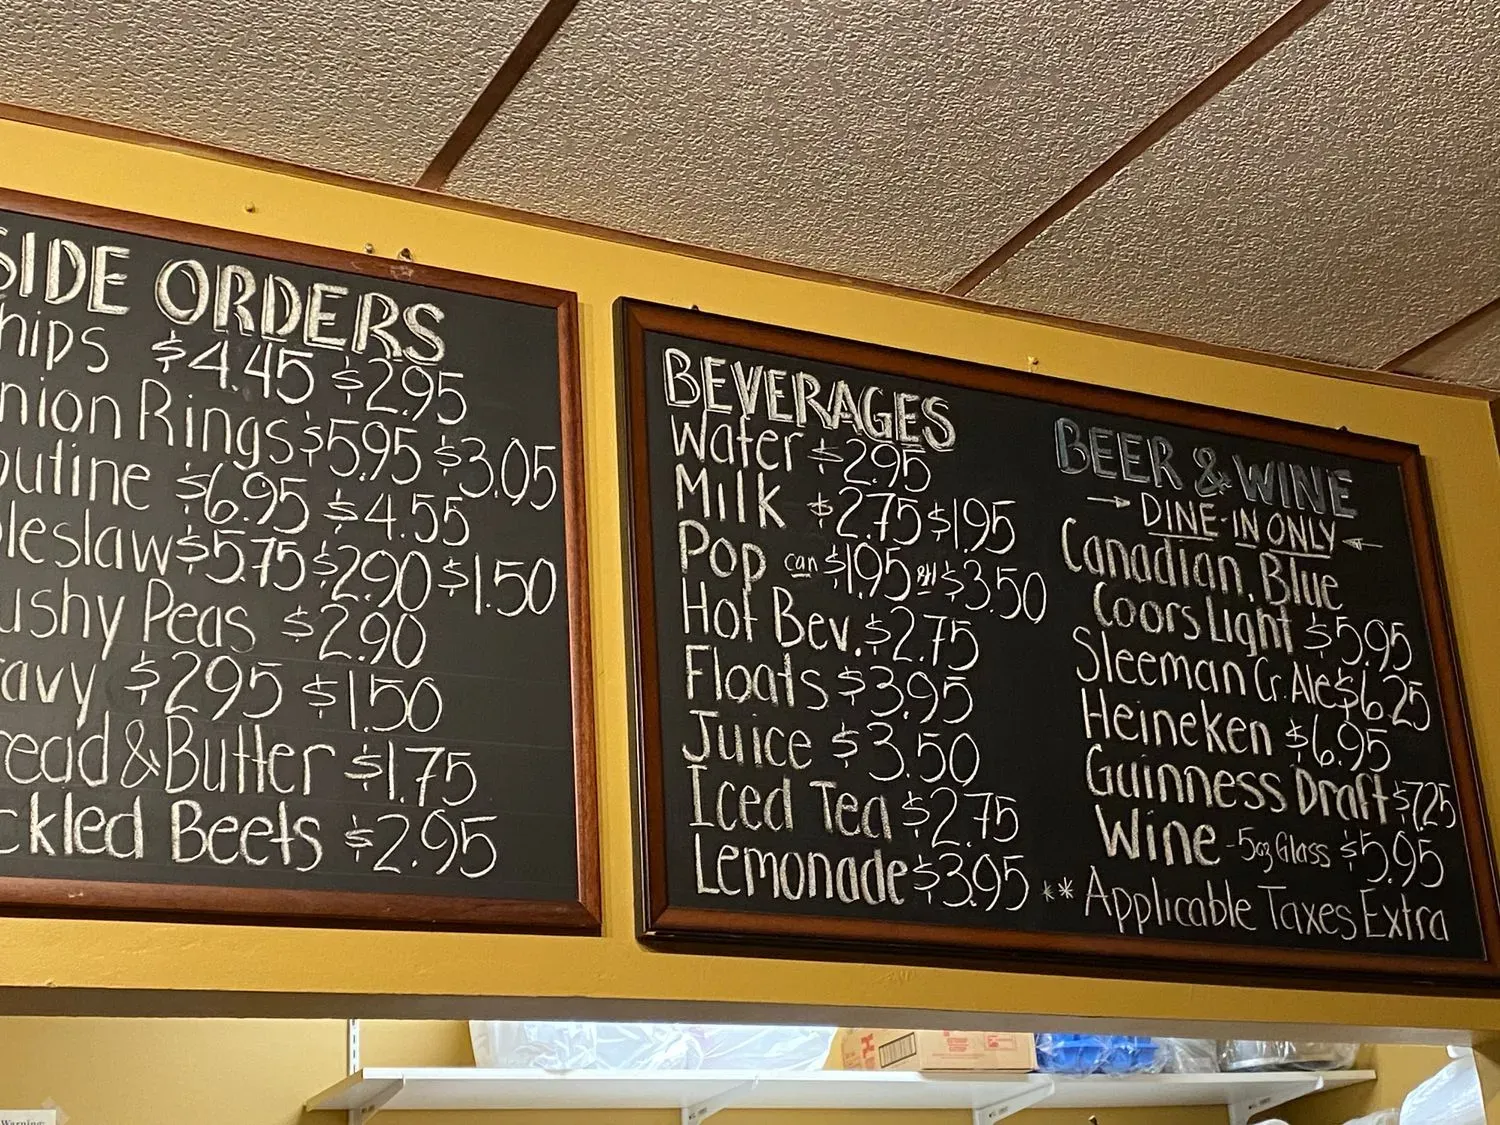 SIDE ORDERS
hips $4.45 $2.95
nion Rings $5.95 $3.05
outine $6.95 $4.55
oleslaw $5.75 $2.90 $1.50
ushy Peas $2.90
avy $2.95 $1.50
read & Butter $1.75
ckled Beets $2.95
BEVERAGES
Water $2.95
Milk $2.75 $1.95
Pop can $1.95 $3.50
Hot Bev. $2.75
Floats $3.95
Juice $3.50
Iced Tea $2.75
Lemonade $3.95
BEER & WINE
→ DINE-IN ONLY ←
Canadian, Blue
Coors Light $5.95
Sleeman Cr. Ale $6.25
Heineken $6.95
Guinness Draft $7.25
Wine - 5oz Glass $5.95
** Applicable Taxes Extra
Warning: